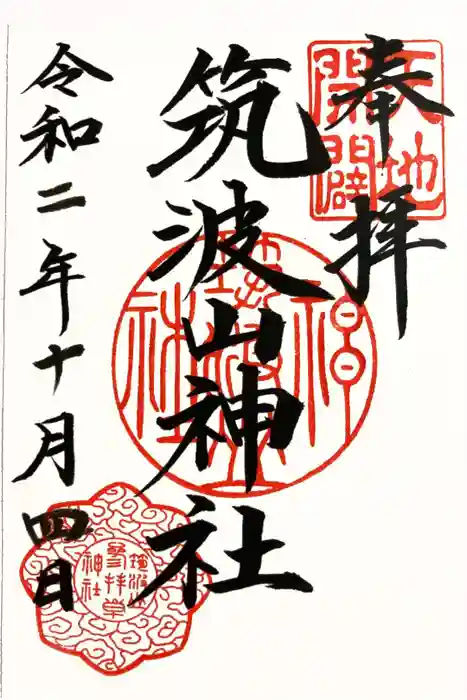 奉拝
天地開闢
筑波山神社
筑波山神社
令和二年十月四日
筑波山神社参拝章